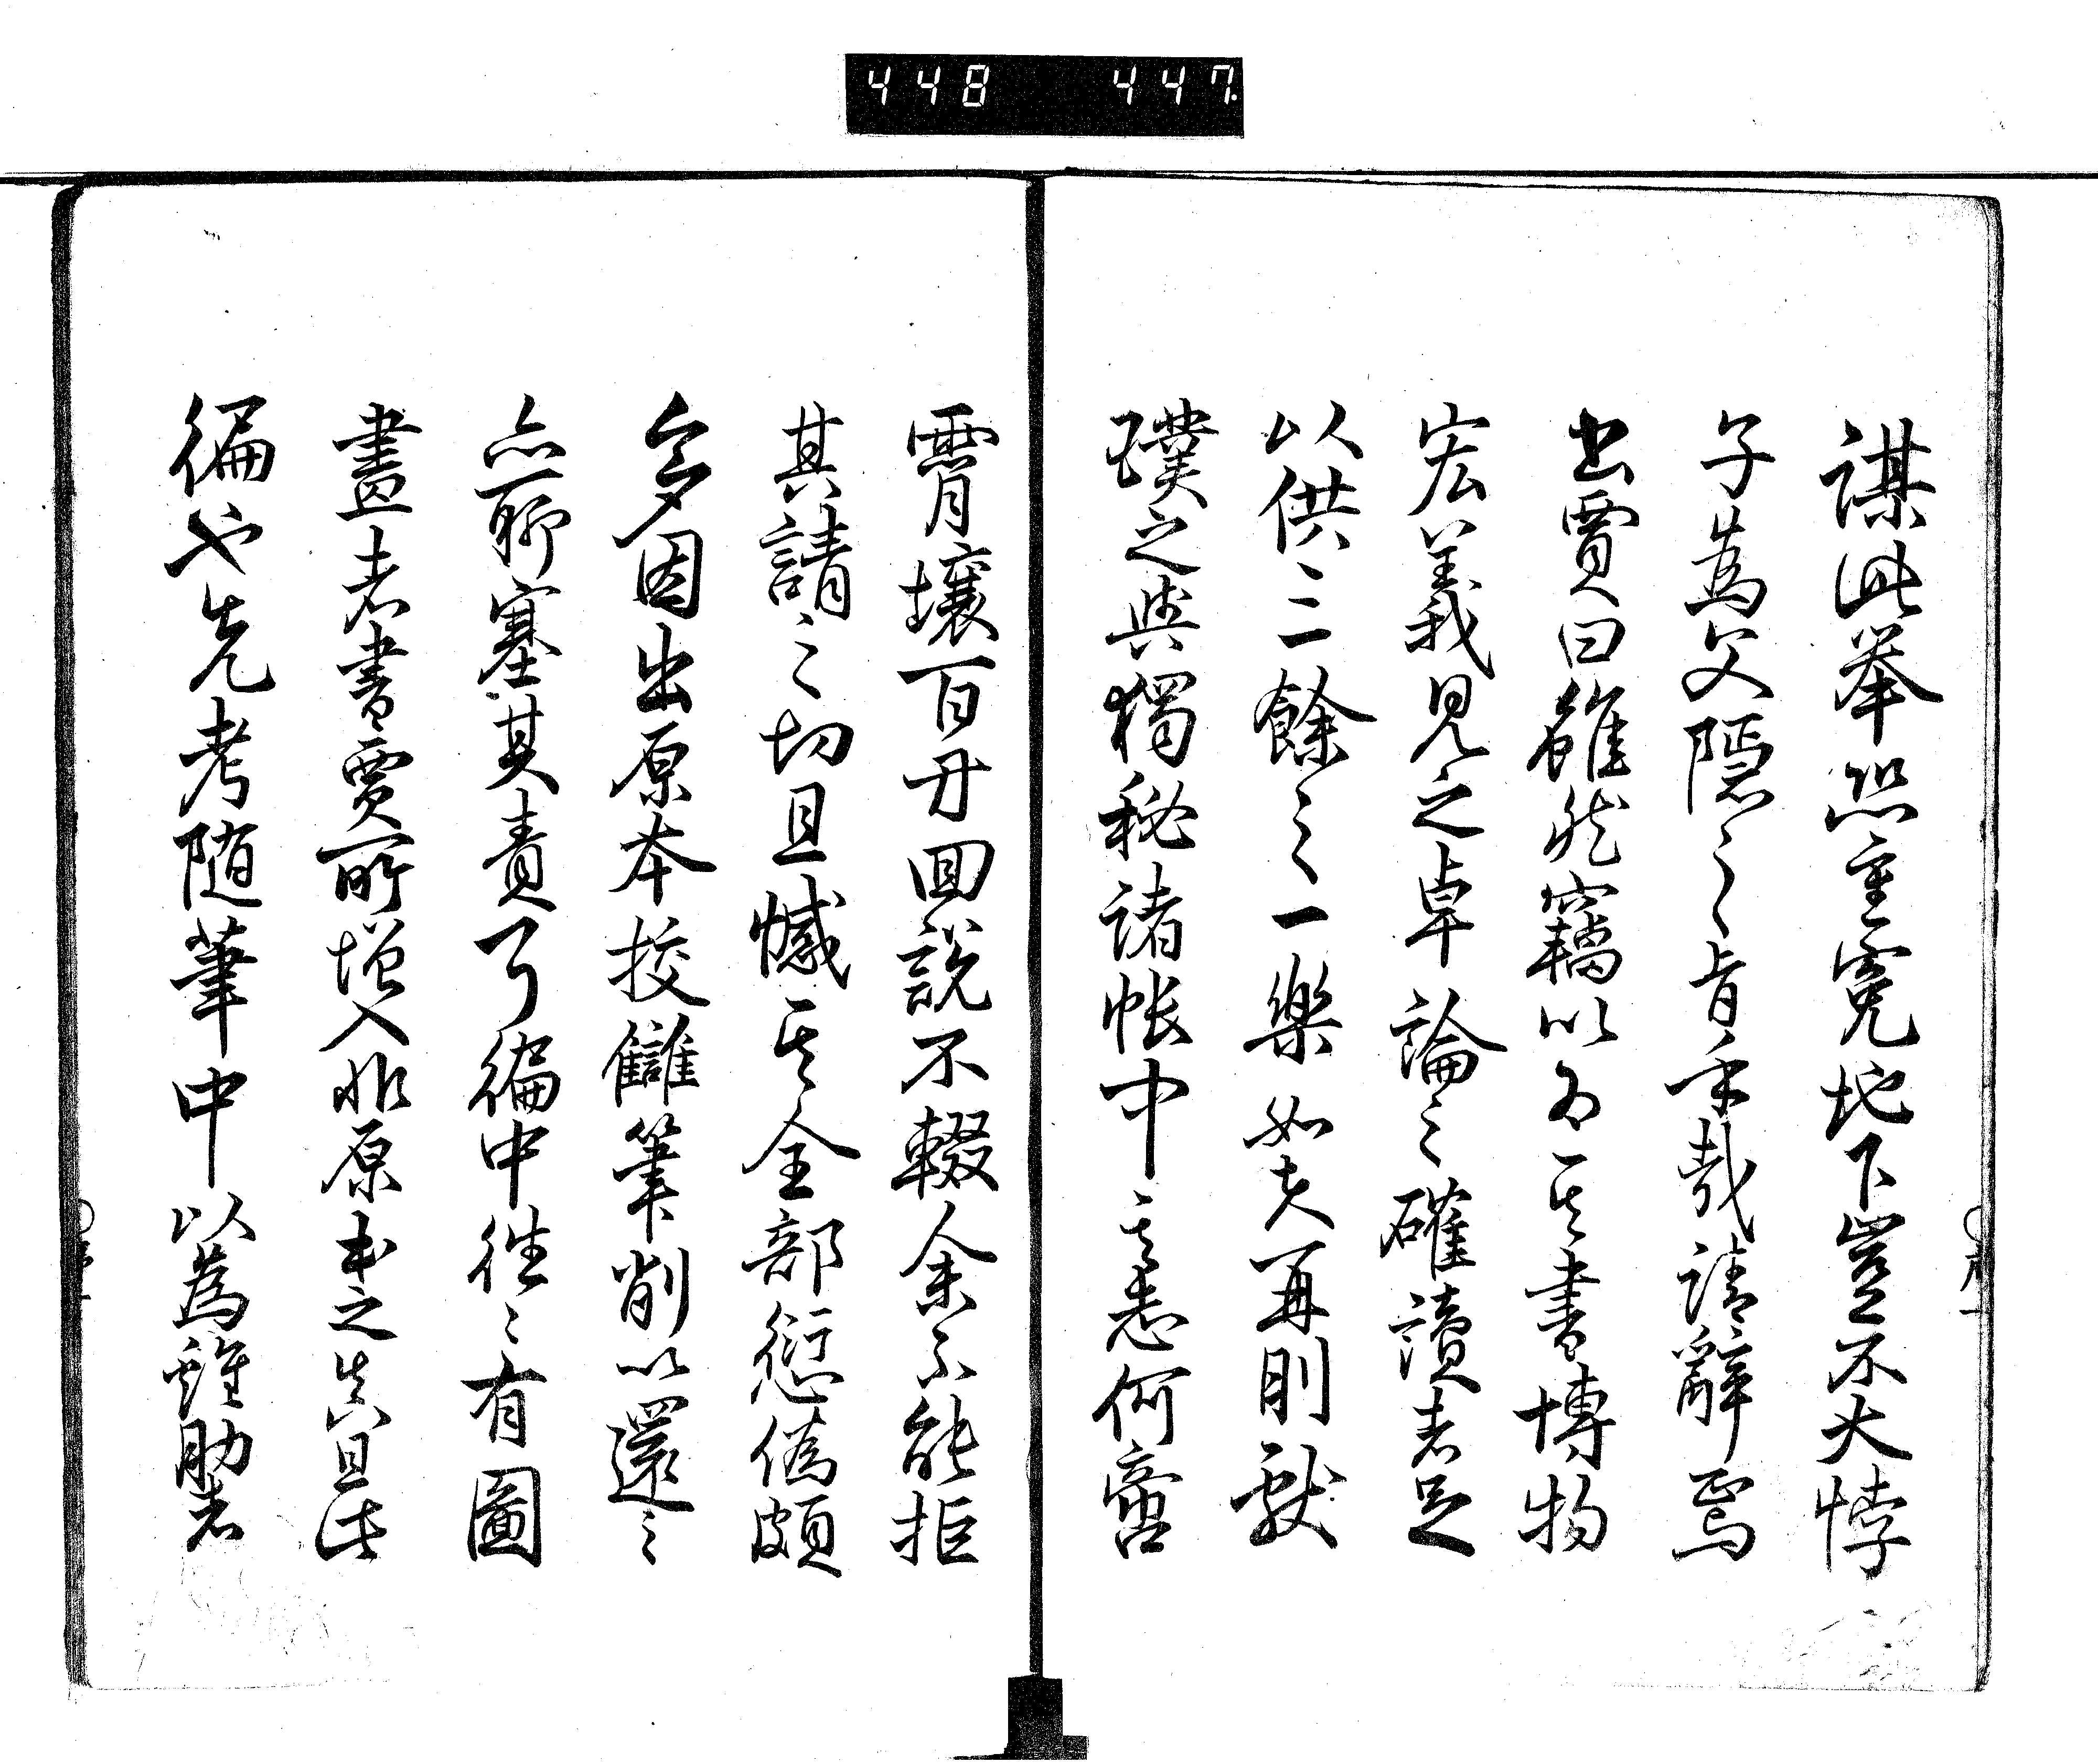 448 447
謀此挙恐重寃地下豈不大悖
子為父隠之之旨乎哉請辭焉
書賈曰雖然竊以為其書博物
宏義見之卓論之確讀者足
以供三餘之一樂如夫再則獻
璞之與獨秘諸帳中其悉何啻
霄壤百毋回説不輟余不能拒
其請之切且憾其全部愆偽頗
多因出原本挍讎筆削以還之
亦聊塞其責了編中往〻有圖
畫者書賈所増入非原本之真且此
編也先考随筆中以為雞肋者